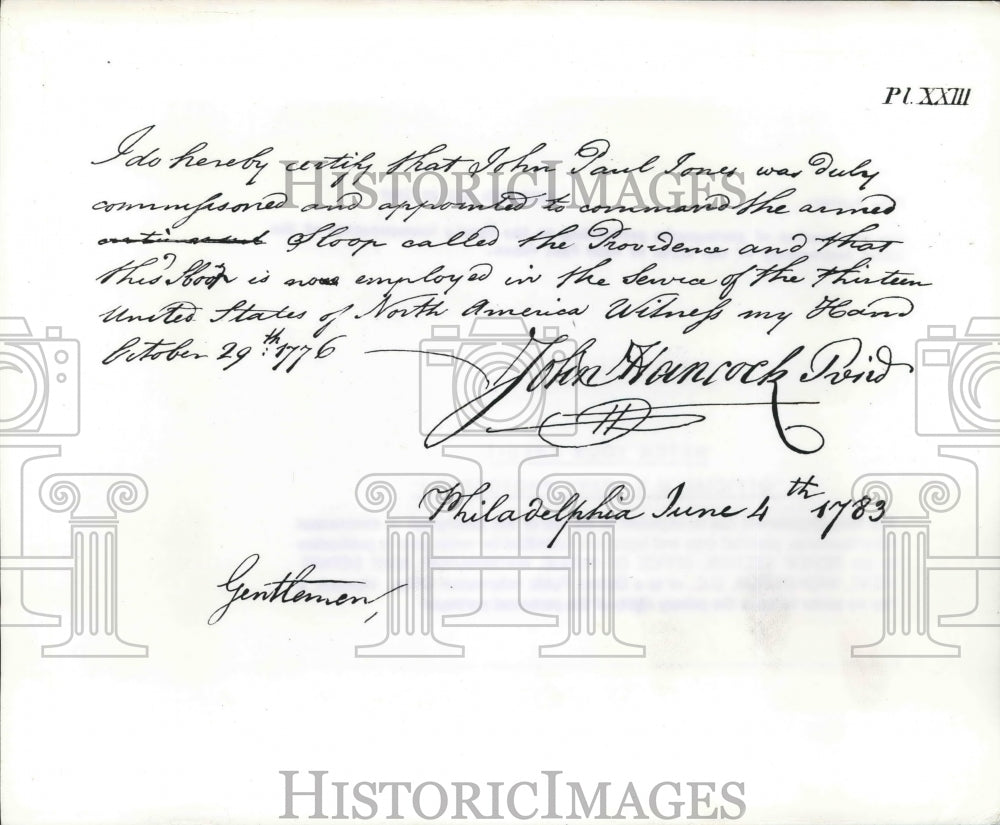 Pl. XXIII
I do hereby certify that John Paul Jones was duly
commissioned and appointed to command the armed
Sloop called the Providence and that
this Sloop is now employed in the Service of the thirteen
United States of North America Witness my Hand
October 29th: 1776
John Hancock Presid
Philadelphia June 4th 1783
Gentlemen,
HISTORICIMAGES
HISTORICIMAGES
HISTORICIMAGES